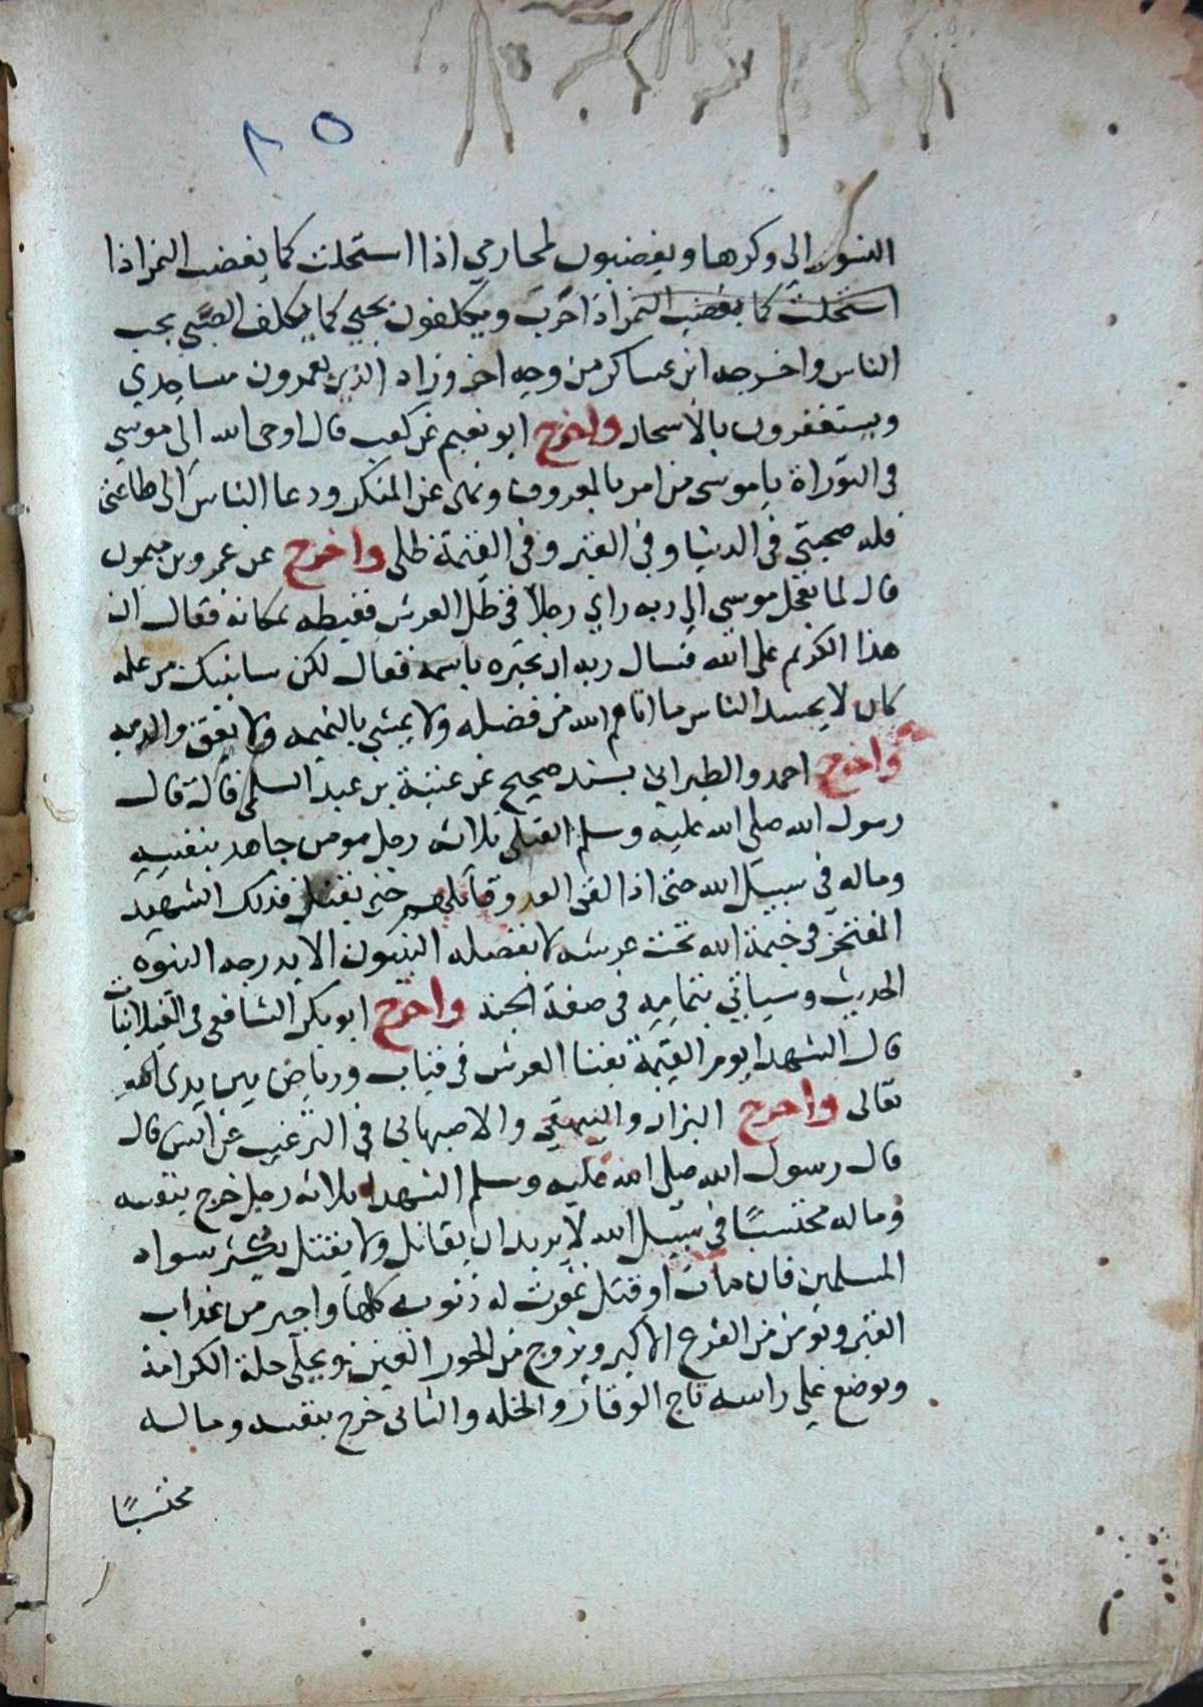 ٨٥
النسور الي وكرها ويغضبون لمحارمي اذا استحلت كما يغضب النمر اذا
استحلت كما يغضب النمر اذا حرب ويكلفون بحبي كما يكلف الصبي بحب
الناس واخرجه ابن عساكر من وجه اخر وزاد الذين يعمرون مساجدي
ويستغفرون بالاسحار واخرج ابو نعيم عن كعب قال اوحى الله الى موسي
فى التوراة ياموسى من امر بالمعروف ونهى عن المنكر ودعا الناس الى طاعتى
فله صحبتى فى الدنيا وفى القبر وفى القيمة ظلى واخرج عن عمرو بن ميمون
قال لما تعجل موسى الي ربه راي رجلا فى ظل العرش فغبطه بمكانه فقال ان
هذا الكريم على الله فسال ربه ان يخبره باسمه فقال لكن سانبئك من عمله
كان لا يحسد الناس ما اتاهم الله من فضله ولا يمشي بالنميمه ولا يعق والديه
واخرج احمد والطبراني بسند صحيح عن عتبة بن عبد السلمى قال قال
رسول الله صلى الله عليه وسلم القتلى ثلاثه رجل مومن جاهد بنفسه
وماله فى سبيل الله حتى اذا لقى العدو قاتلهم حتى يقتل فذلك الشهيد
المفتخر فى خيمة الله تحت عرشه لا يفضله النبيون الا بدرجه النبوه
الحديث وسياتي بتمامه فى صفة الجنه واخرج ابو بكر الشافعى فى الغيلانيات
قال الشهدا يوم القيمة بفنا العرش فى قباب ورياض بين يدى الله
تعالى واخرج البزار والبيهقى والاصبهانى فى الترغيب عن انس قال
قال رسول الله صلى الله عليه وسلم الشهدا ثلاثه رجل خرج بنفسه
وماله محتسبًا فى سبيل الله لا يريد ان يقاتل ولا يقتل يكثر سواد
المسلمين فان مات او قتل غفرت له ذنوبه كلها واجير من عذاب
القبر ويومن من الفزع الاكبر ويزوج من الحور العين ويحلى حلة الكرامة
ويوضع على راسه تاج الوقار والخلد والثانى خرج بنفسه وماله
محتسبًا